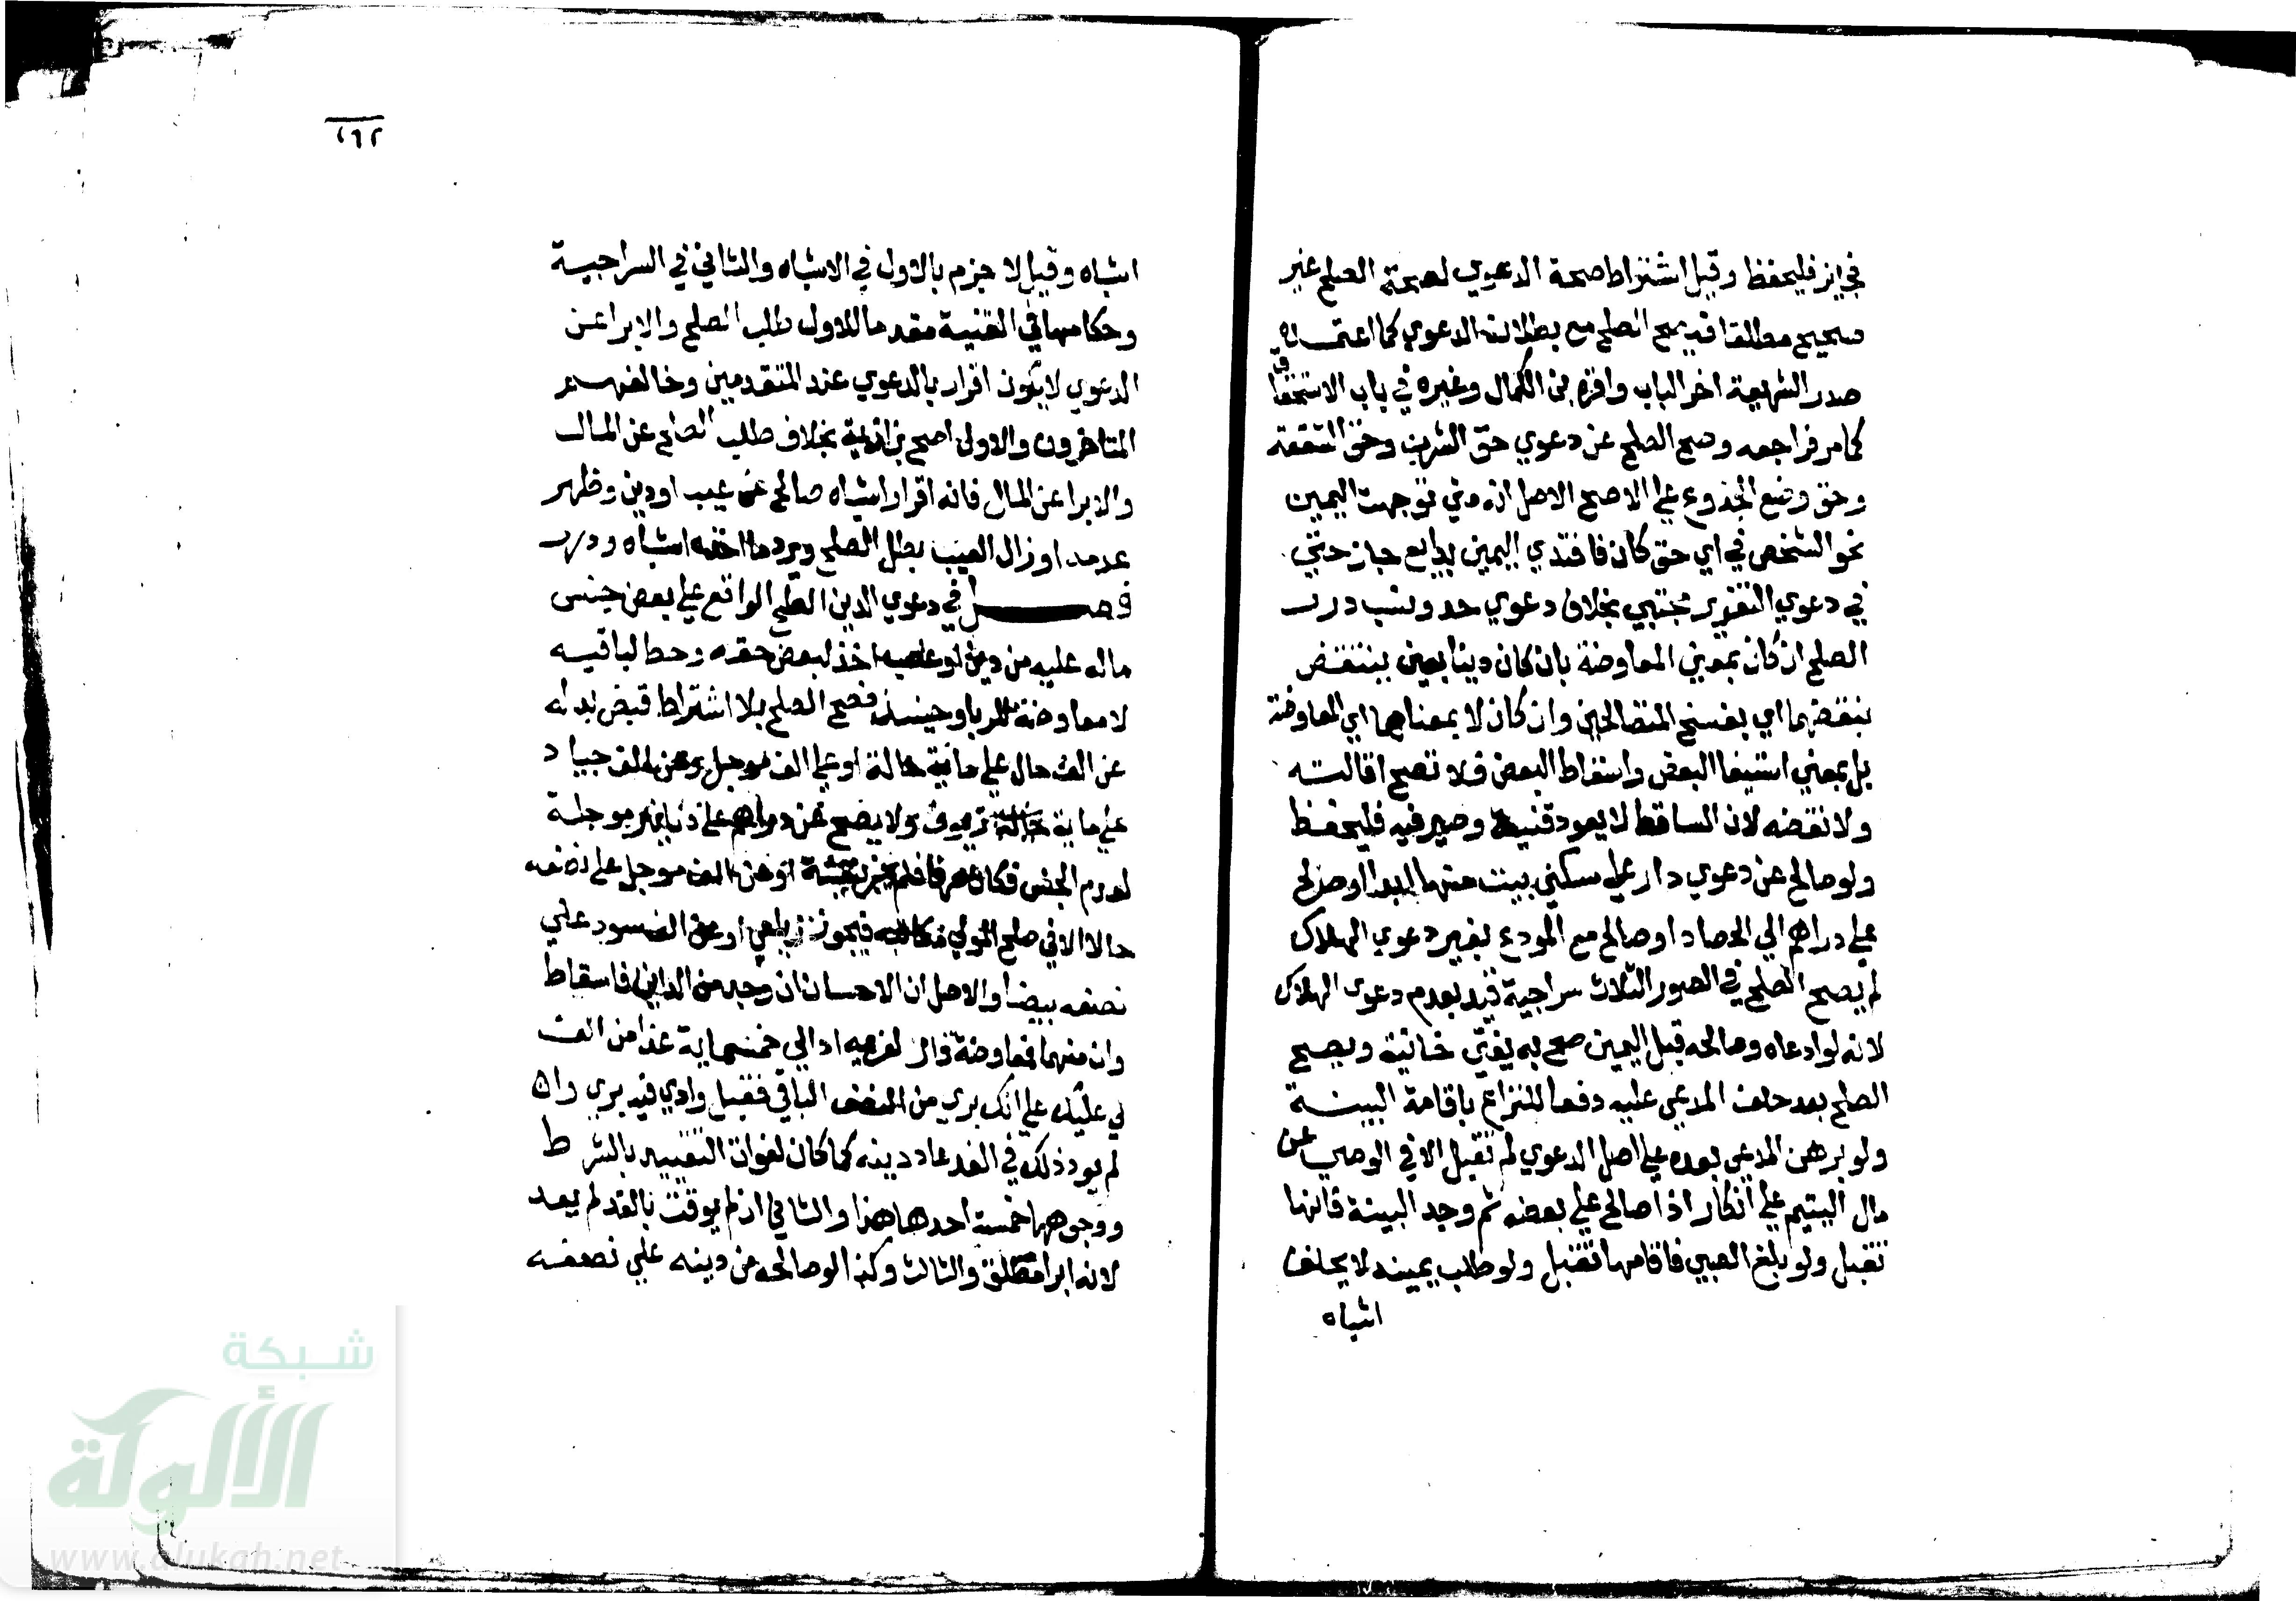 فجايز فليحفظ وقيل اشتراط صحة الدعوي لصحة الصلح غير
صحيح مطلقا فيصح الصلح مع بطلان الدعوي كما اعتمده
صدر الشريعة اخر الباب واقره بن الكمال وغيره في باب الاستحقاق
كما مر فراجعه وصح الصلح عن دعوي حق الشرب وحق الشفعة
وحق وضع الجذوع علي الاصح الاصل انه متي توجهت اليمين
نحو الشخص في اي حق كان فافتدي اليمين بدراهم جاز حتي
في دعوي التعزير مجتبي بخلاف دعوي حد ونسب درر
الصلح ان كان بمعني المعاوضة بان كان دينا بعين ينتقض
بنقضهما اي بفسخ المتصالحين وان كان لا بمعناها اي المعاوضة
بل بمعني استيفا البعض واسقاط البعض فلا تصح اقالته
ولا نقضه لان الساقط لا يعود قنية وصيرفيه فليحفظ
ولو صالح عن دعوي دار علي سكني بيت منها ابدا او صالح
علي دراهم الي الحصاد او صالح مع المودع بغير دعوي الهلاك
لم يصح الصلح في الصور الثلاث سراجية قيد بعدم دعوي الهلاك
لانه لو ادعاه وصالحه قبل اليمين صح به يفتي خانية ويصح
الصلح بعد حلف المدعي عليه دفعا للنزاع باقامة البينة
ولو برهن المدعي بعده علي اصل الدعوي لم تقبل الا في الوصي عن
مال اليتيم علي انكار اذا صالح علي بعضه ثم وجد البينة فانها
تقبل ولو بلغ الصبي فاقامها تقبل ولو طلب يمينه لا يحلف
اشباه
٢٦٢
اشباه وقيل لا جزم بالاول في الاشباه والثاني في السراجية
وحكاهما في القنية مقدما للاول طلب الصلح والابرا عن
الدعوي لا يكون اقرار بالدعوي عند المتقدمين وخالفهم
المتاخرون والاولي اصح بزازية بخلاف طلب الصلح عن المال
والابرا عن المال فانه اقرار اشباه صالح عن عيب او دين وظهر
عدمه او زال العيب بطل الصلح ويرد ما اخذه اشباه ودرر
فصل في دعوي الدين الصلح الواقع علي بعض جنس
ماله عليه من دين او غصب اخذ لبعض حقه وحط لباقيه
لا معاوضة للربا وحينئذ فصح الصلح بلا اشتراط قبض بدله
عن الف حال علي ماية حالة او علي الف موجل وعن الف جياد
علي ماية زيوف ولا يصح عن دراهم علي دنانير موجلة
لعدم الجنس فكان صرفا فلم يجز نسيئة او عن الف موجل علي نصفه
حالا الا في صلح المولي مكاتبه فيجوز زيلعي او عن الف سود علي
نصفه بيضا والاصل ان الاحسان ان وجد من الداين فاسقاط
وان منهما فمعاوضة قال لغريمه ادا الي خمسماية غدا من الف
لي عليك علي انك بري من النصف الباقي فقبل وادي فيه بري وان
لم يود ذلك في الغد عاد دينه كما كان لفوات التقييد بالشرط
ووجوهها خمسة احدها هذا والثاني ان لم يوقت بالغد لم يعد
لانه ابرا مطلق والثالث وكذا لو صالحه من دينه علي نصفه
شبكة
الألوكة
www.alukah.net